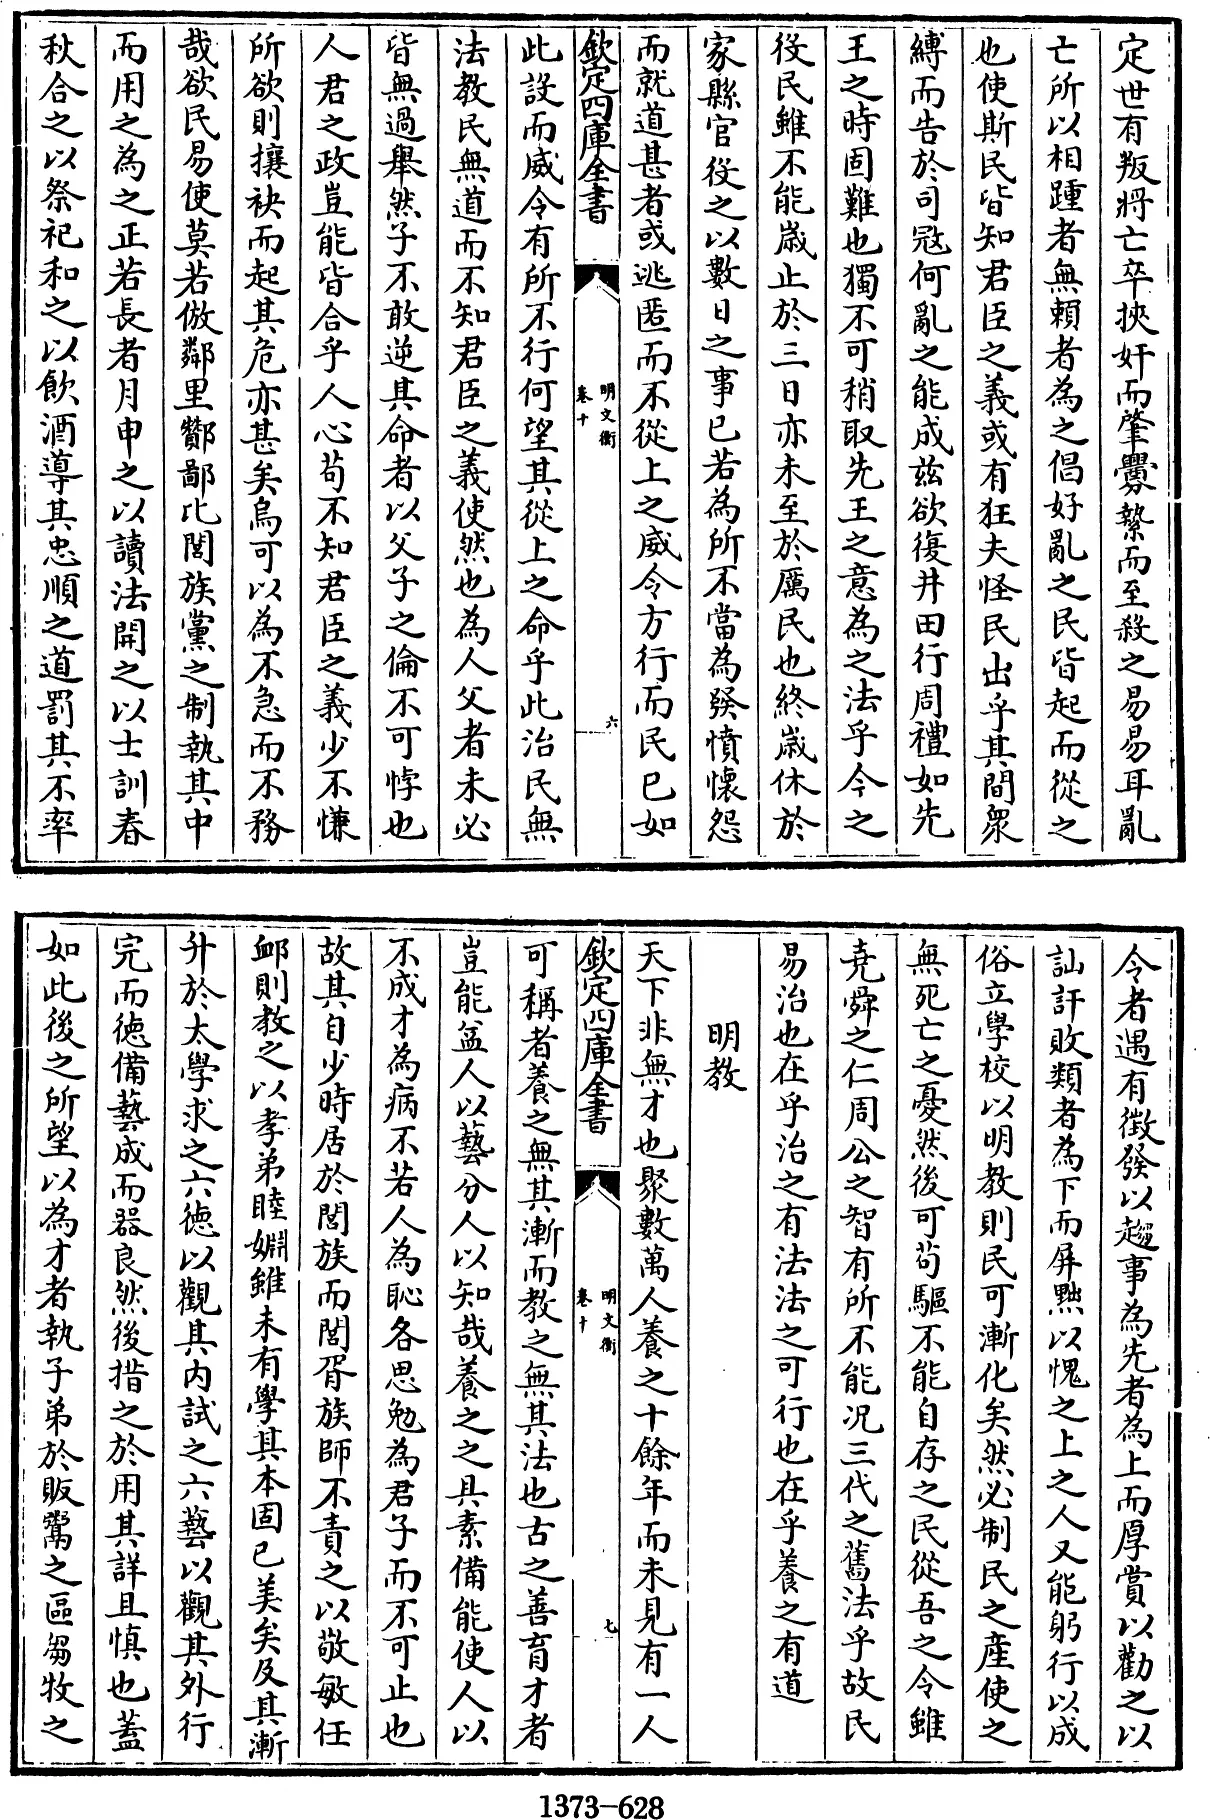 定世有叛將亡卒挾奸而肇釁縶而至殺之易易耳亂
亡所以相踵者無賴者為之倡好亂之民皆起而從之
也使斯民皆知君臣之義或有狂夫怪民出乎其間衆
縛而告於司冦何亂之能成兹欲復井田行周禮如先
王之時固難也獨不可稍取先王之意為之法乎今之
役民雖不能嵗止於三日亦未至於厲民也終嵗休於
家縣官役之以數日之事已若為所不當為發憤懷怨
而就道甚者或逃匿而不從上之威令方行而民已如
欽定四庫全書
明文衡
卷十
六
此設而威令有所不行何望其從上之命乎此治民無
法教民無道而不知君臣之義使然也為人父者未必
皆無過舉然子不敢逆其命者以父子之倫不可悖也
人君之政豈能皆合乎人心茍不知君臣之義少不慊
所欲則攘袂而起其危亦甚矣烏可以為不急而不務
哉欲民易使莫若倣鄰里酇鄙比閭族黨之制執其中
而用之為之正若長者月申之以讀法開之以士訓春
秋合之以祭祀和之以飲酒導其忠順之道罰其不率
令者遇有徵發以趨事為先者為上而厚賞以勸之以
訕訐敗類者為下而屏黜以愧之上之人又能躬行以成
俗立學校以明教則民可漸化矣然必制民之産使之
無死亡之憂然後可茍驅不能自存之民從吾之令雖
堯舜之仁周公之智有所不能况三代之舊法乎故民
易治也在乎治之有法法之可行也在乎養之有道
明教
天下非無才也聚數萬人養之十餘年而未見有一人
欽定四庫全書
明文衡
卷十
七
可稱者養之無其漸而教之無其法也古之善育才者
豈能益人以藝分人以知哉養之之具素備能使人以
不成才為病不若人為恥各思勉為君子而不可止也
故其自少時居於閭族而閭胥族師不責之以敬敏任
䘏則教之以孝弟睦婣雖未有學其本固已美矣及其漸
升於太學求之六徳以觀其内試之六藝以觀其外行
完而徳備藝成而器良然後措之於用其詳且慎也蓋
如此後之所望以為才者執子弟於販鬻之區芻牧之
1373-628